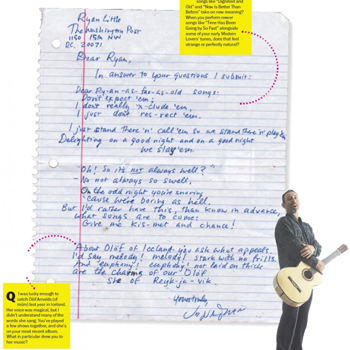 songs like "Dignified and
Old" and "Now Is Better Than
Before" take on new meaning?
When you perform newer
songs like "Time Has Been
Going By So Fast" alongside
some of your early Modern
Lovers' tunes, does that feel
strange or perfectly natural?
Ryan Little
The Washington Post
1150 15th NW
DC. 20071
Dear Ryan,
In answer to your questions I submit:
Dear Ry-an-as-far-as-old songs:
Don't expect 'em;
I don't really 'x-clude 'em,
I just don't res-rect 'em.
I just stand there 'n' call 'em so we stand there 'n' play 'em
Delighting on a good night and on a good night
we slay 'em.
Oh! So its not always well?"
No not always so swell,
On the odd night you're snoring
'cause we're boring as hell.
But I'd rather have this, than know in advance,
what songs are to come:
Give me kis-met and chance!
About Olof of Iceland you ask what appeals.
I'd say melody! melody! stark with no frills.
And euphony! euphony! not laid on thick
are the charms of our Olof
She of Reyk-ja-vik
Yours truly,
Q I was lucky enough to
catch Ólöf Arnalds (of
múm) last year in Iceland.
Her voice was magical, but I
didn't understand many of the
words she sang. You've played
a few shows together, and she's
on your most recent album.
What in particular drew you to
her music?